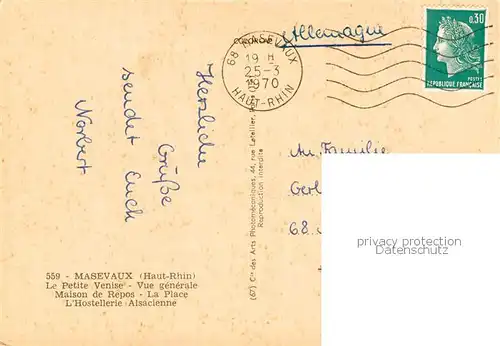 Allemagne
68 MASEVAUX
19 H
25-3
1970
HAUT-RHIN
0,30
POSTES
REPUBLIQUE FRANÇAISE
Herzliche
Grüße
sendet Euch
Norbert
(67) Cie des Arts Photomécaniques, 44, rue Letellier,
Reproduction interdite
An Familie
Gerl
68
privacy protection
Datenschutz
559 - MASEVAUX (Haut-Rhin)
Le Petite Venise - Vue générale
Maison de Repos - La Place
L'Hostellerie Alsacienne